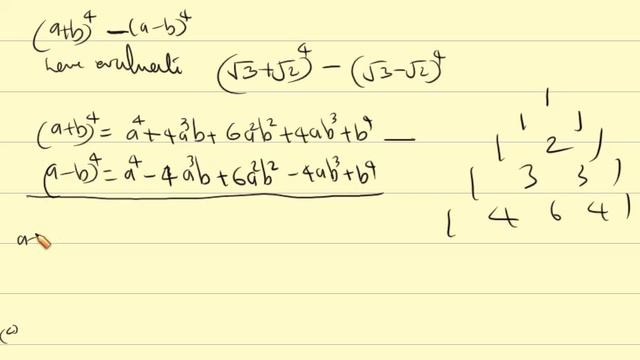 (a+b)⁴ − (a−b)⁴
hence evaluate (√3+√2)⁴ − (√3−√2)⁴
(a+b)⁴ = a⁴ + 4a³b + 6a²b² + 4ab³ + b⁴ —
(a−b)⁴ = a⁴ − 4a³b + 6a²b² − 4ab³ + b⁴
1
1 1
1 2 1
1 3 3 1
1 4 6 4 1